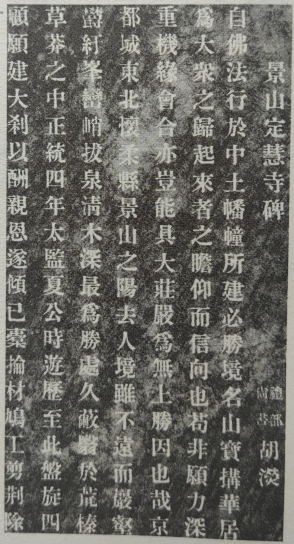 景山定慧寺碑
禮部尚書 胡濙
自佛法行於中土幡幢所建必勝境名山寶搆華居
爲大衆之歸起來者之瞻仰而信向也苟非願力深
重機緣會合亦豈能具大莊嚴爲無上勝因也哉京
都城東北懷柔縣景山之陽去人境雖不遠而巖壑
欝紆峯巒峭拔泉清木深最爲勝處久蔽翳於荒榛
草莽之中正統四年太監夏公時遊歷至此盤旋四
顧願建大刹以酬親恩遂傾已槖掄材鳩工剪荆除